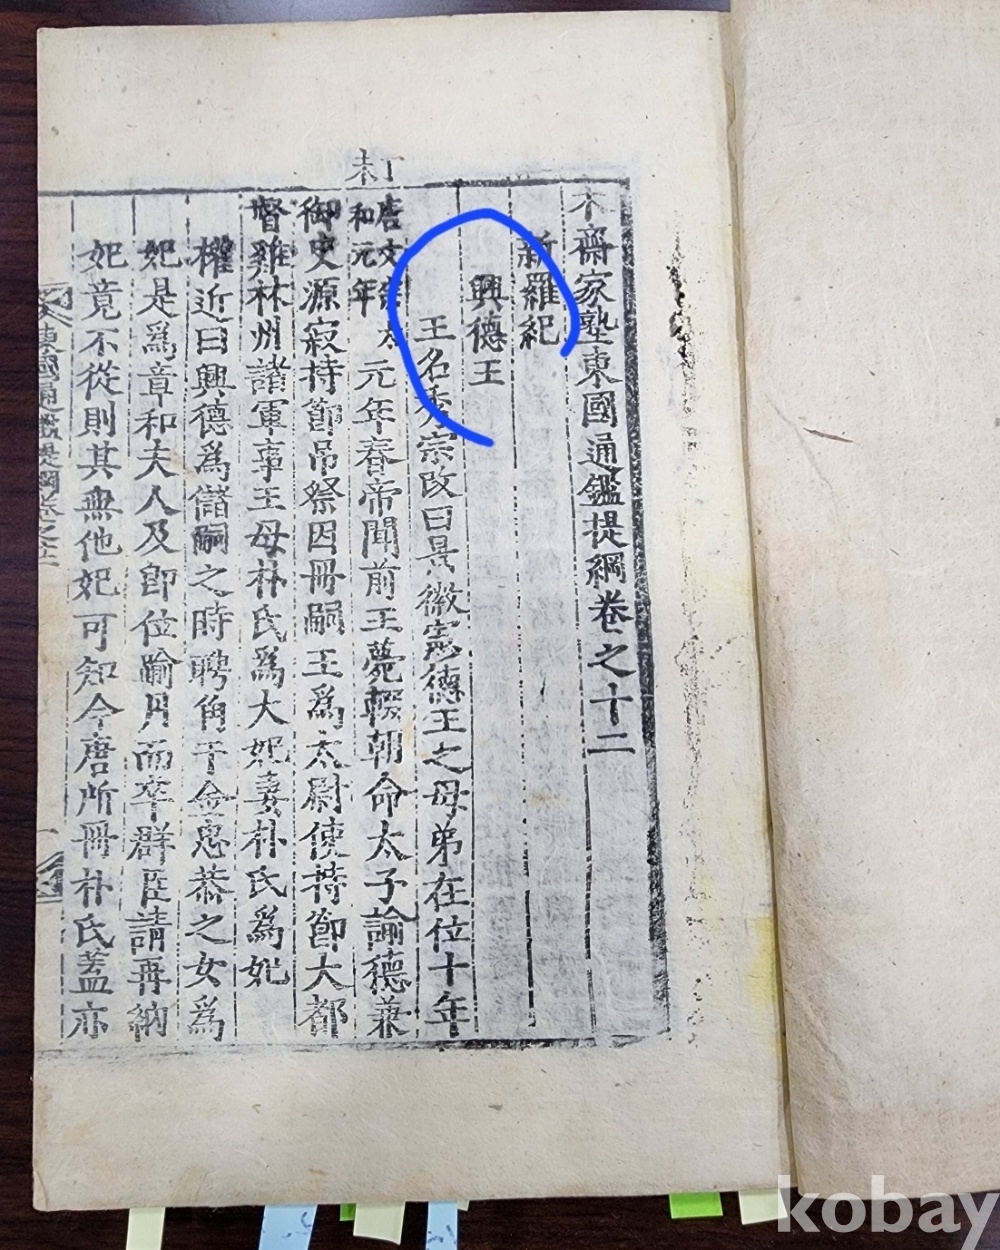 木齋家塾東國通鑑提綱卷之十二
新羅紀
興德王
王名秀宗改曰景徽憲德王之母弟在位十年
丁未
唐文宗太
和元年
元年春帝聞前王薨輟朝命太子諭德兼
御史源寂持節吊祭因冊嗣王爲太尉使持節大都
督雞林州諸軍事王母朴氏爲大妃妻朴氏爲妃
權近曰興德爲儲嗣之時聘角干金忠恭之女爲
妃是爲章和夫人及卽位踰月而卒群臣請再納
妃竟不從則其無他妃可知今唐所冊朴氏蓋亦
東國通鑑提綱卷之十二
一
kobay